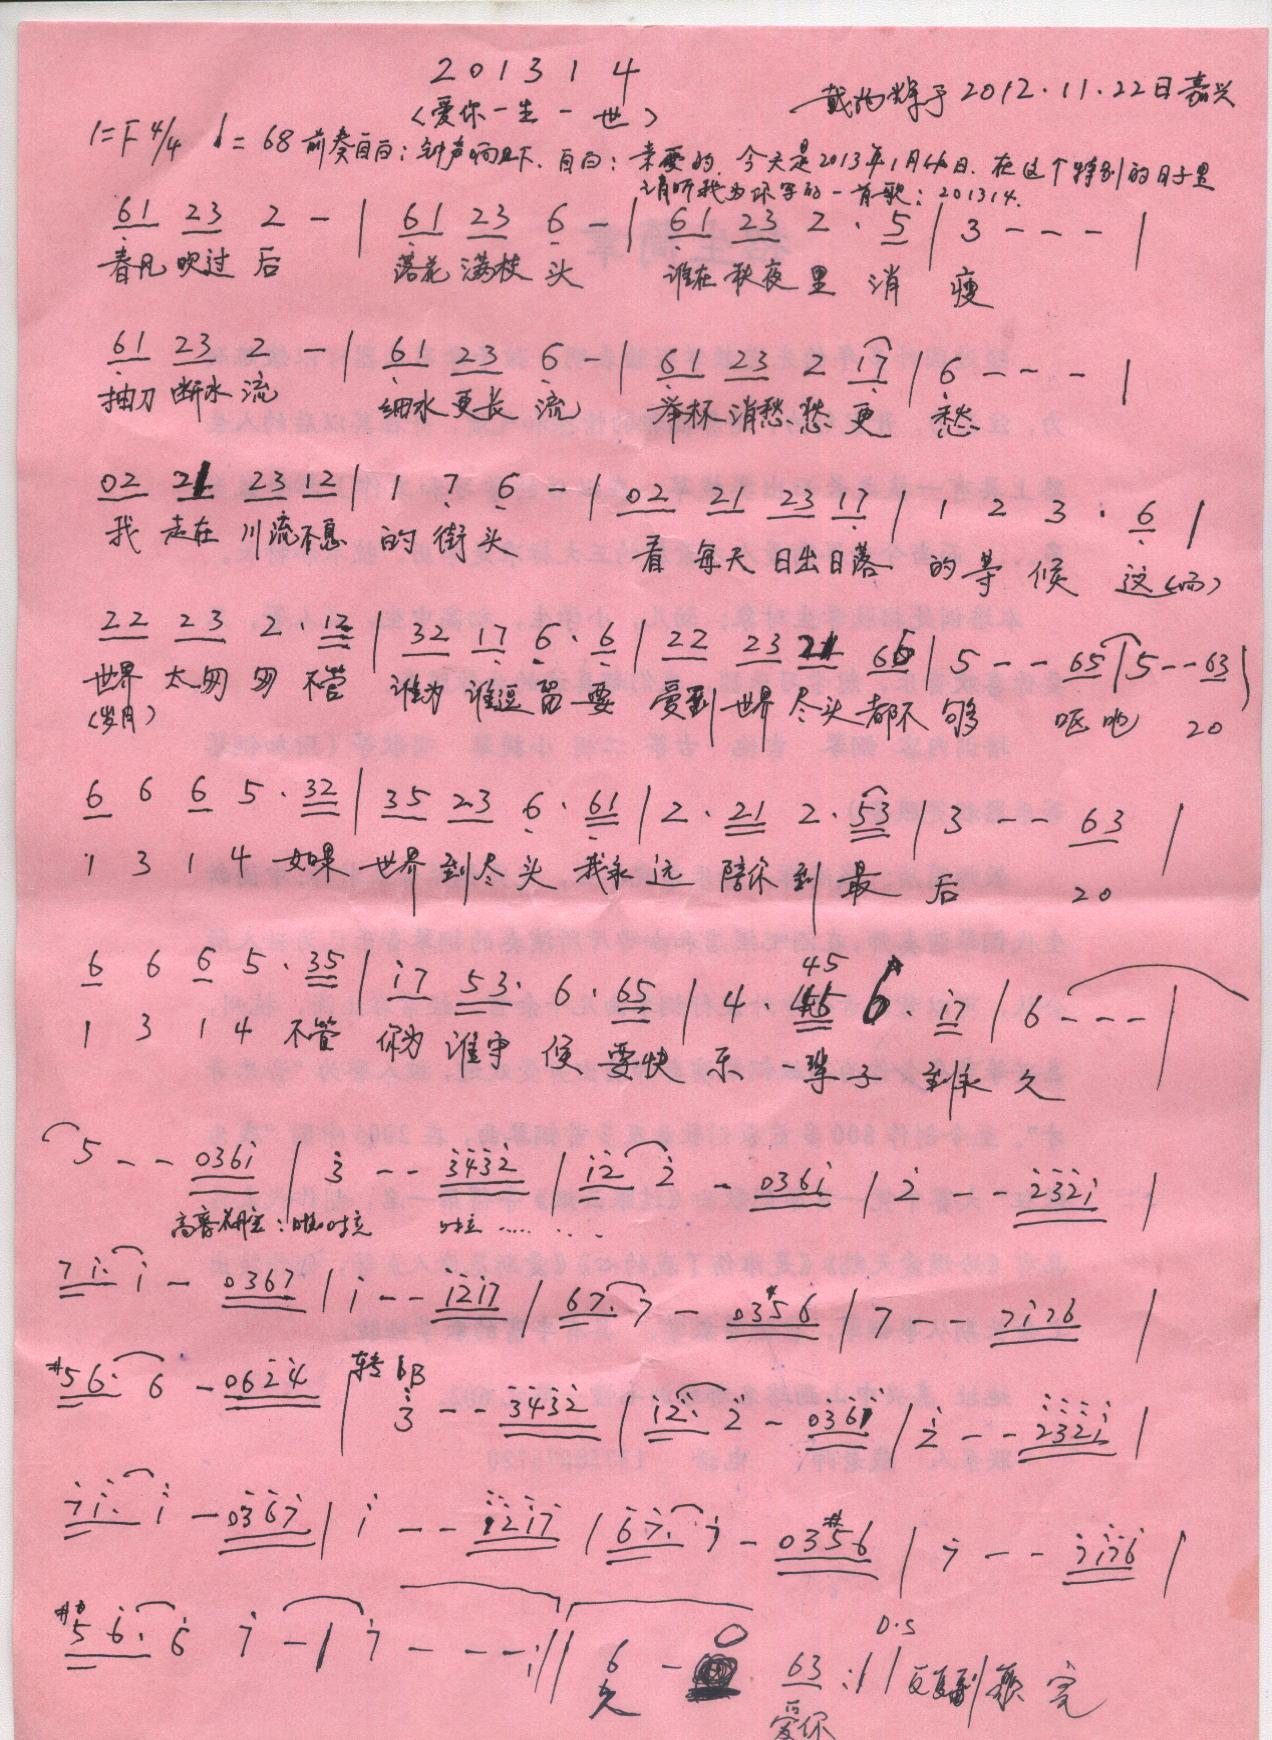 201314
(爱你一生一世)
于2012.11.22日嘉兴
1=F 4/4 ♩=68 前奏自白:钟声响 下.自白:亲爱的,今天是2013年1月4日.在这个特别的日子里
请听我为你写的一首歌:201314.
6̣1 23 2 - | 6̣1 23 6̣ - | 6̣1 23 2 · 5 | 3 - - - |
春风吹过后 落花满枝头 谁在秋夜里消瘦
6̣1 23 2 - | 6̣1 23 6̣ - | 6̣1 23 2 17̣ | 6̣ - - - |
抽刀断水流 细水更长流 举杯消愁愁更愁
02 21 23 12 | 1 7̣ 6̣ - | 02 21 23 17̣ | 1 2 3 · 6̣ |
我走在川流不息的街头 看每天日出日落的等候 这(而)
22 23 2 · 12 | 32 17̣ 6̣ · 6̣ | 22 23 21 66 | 5 - - 65 | 5 - - 63 |
世界太匆匆不管谁为谁逗留要 爱到世界尽头都不够 呕吔 20
(岁月)
6 6 6 5 · 32 | 35 23 6̣ · 6̣1 | 2 · 21 2 · 53 | 3 - - 63 |
1 3 1 4 如果世界到尽头我永远陪你到最后 20
6 6 6 5 · 35 | i7 53 · 6 · 65 | 4 · 45 6 · i7 | 6 - - - |
1 3 1 4 不管你为谁守候要快乐一辈子到永久
5 - - 036i | 3̇ - - 3̇4̇3̇2̇ | i2̇ 2̇ - 036i | 2̇ - - 2̇3̇2̇i |
高音
7i· i - 0367 | i - - i2̇i7 | 67· 7 - 03#56 | 7 - - 7i76 |
#56· 6 - 062̇4̇ | 转bB 3̇ - - 3̇4̇3̇2̇ | i2̇· 2̇ - 036i | 2̇ - - 2̇3̇2̇i |
7i· i - 0367 | i - - i2̇i7 | 67· 7 - 03#56 | 7 - - 7i76 |
#56· 6 7 - | 7 - - - :|| 6 - 0 63 :|| D.S 反复到 完
久 爱你